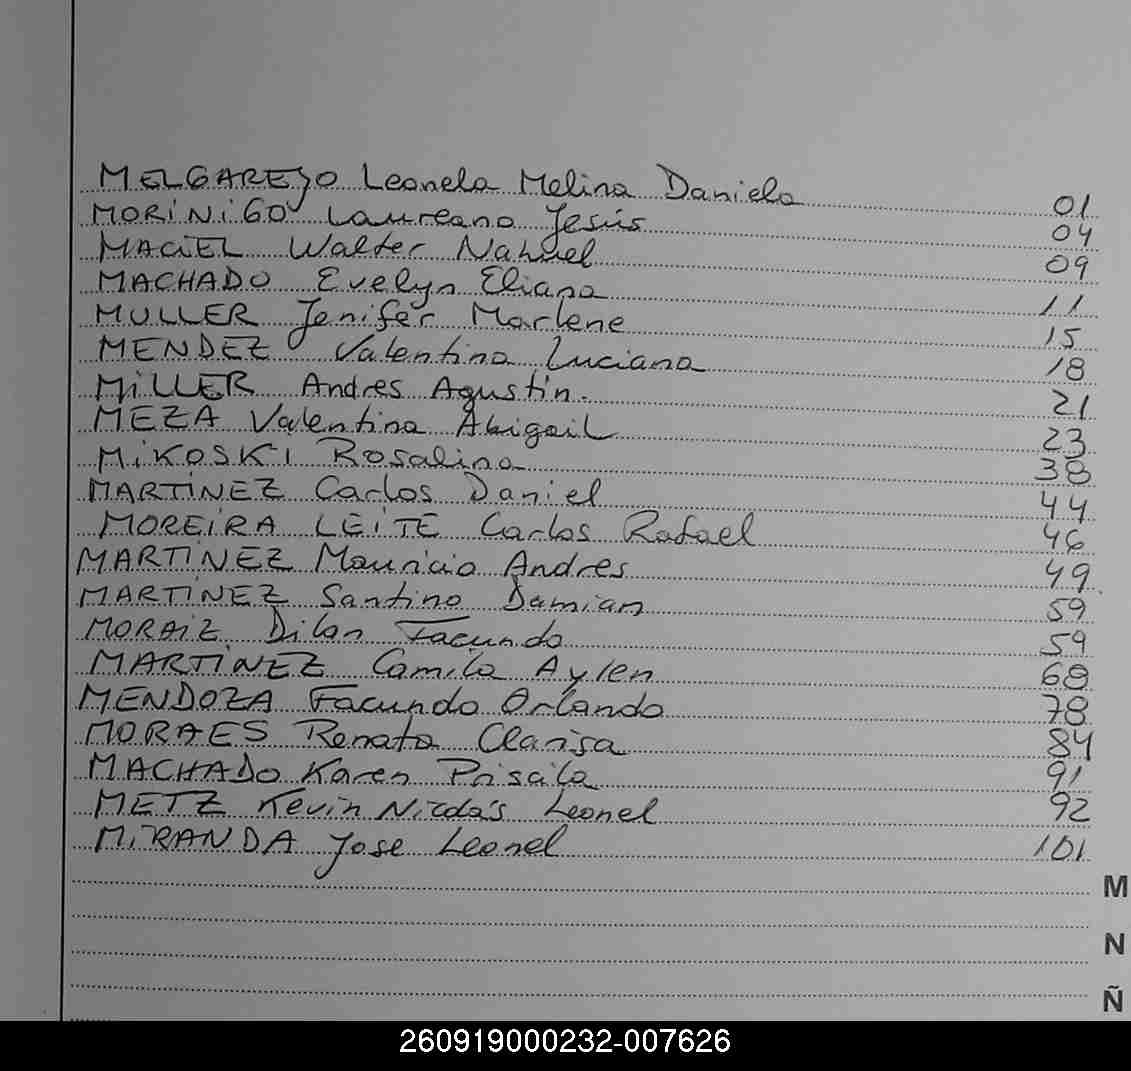 MELGAREJO Leonela Melina Daniela 01
MORiNiGO Laureano Jesús 04
MACiEL Walter Nahuel 09
MACHADO Evelyn Eliana 11
MULLER Jenifer Marlene 15
MENDEZ Valentina Luciana 18
MiLLER Andres Agustin. 21
MEZA Valentina Abigail 23
MiKOSKi Rosalina 38
MARTiNEZ Carlos Daniel 44
MOREiRA LEiTE Carlos Rafael 46
MARTiNEZ Mauricio Andres 49
MARTiNEZ Santino Damian 59
MORAiZ Dilan Facundo 59
MARTiNEZ Camila Aylen 68
MENDOZA Facundo Orlando 78
MORAES Renata Clarisa 84
MACHADO Karen Priscila 91
METZ Kevin Nicolás Leonel 92
MiRANDA Jose Leonel 101
M
N
Ñ
260919000232-007626